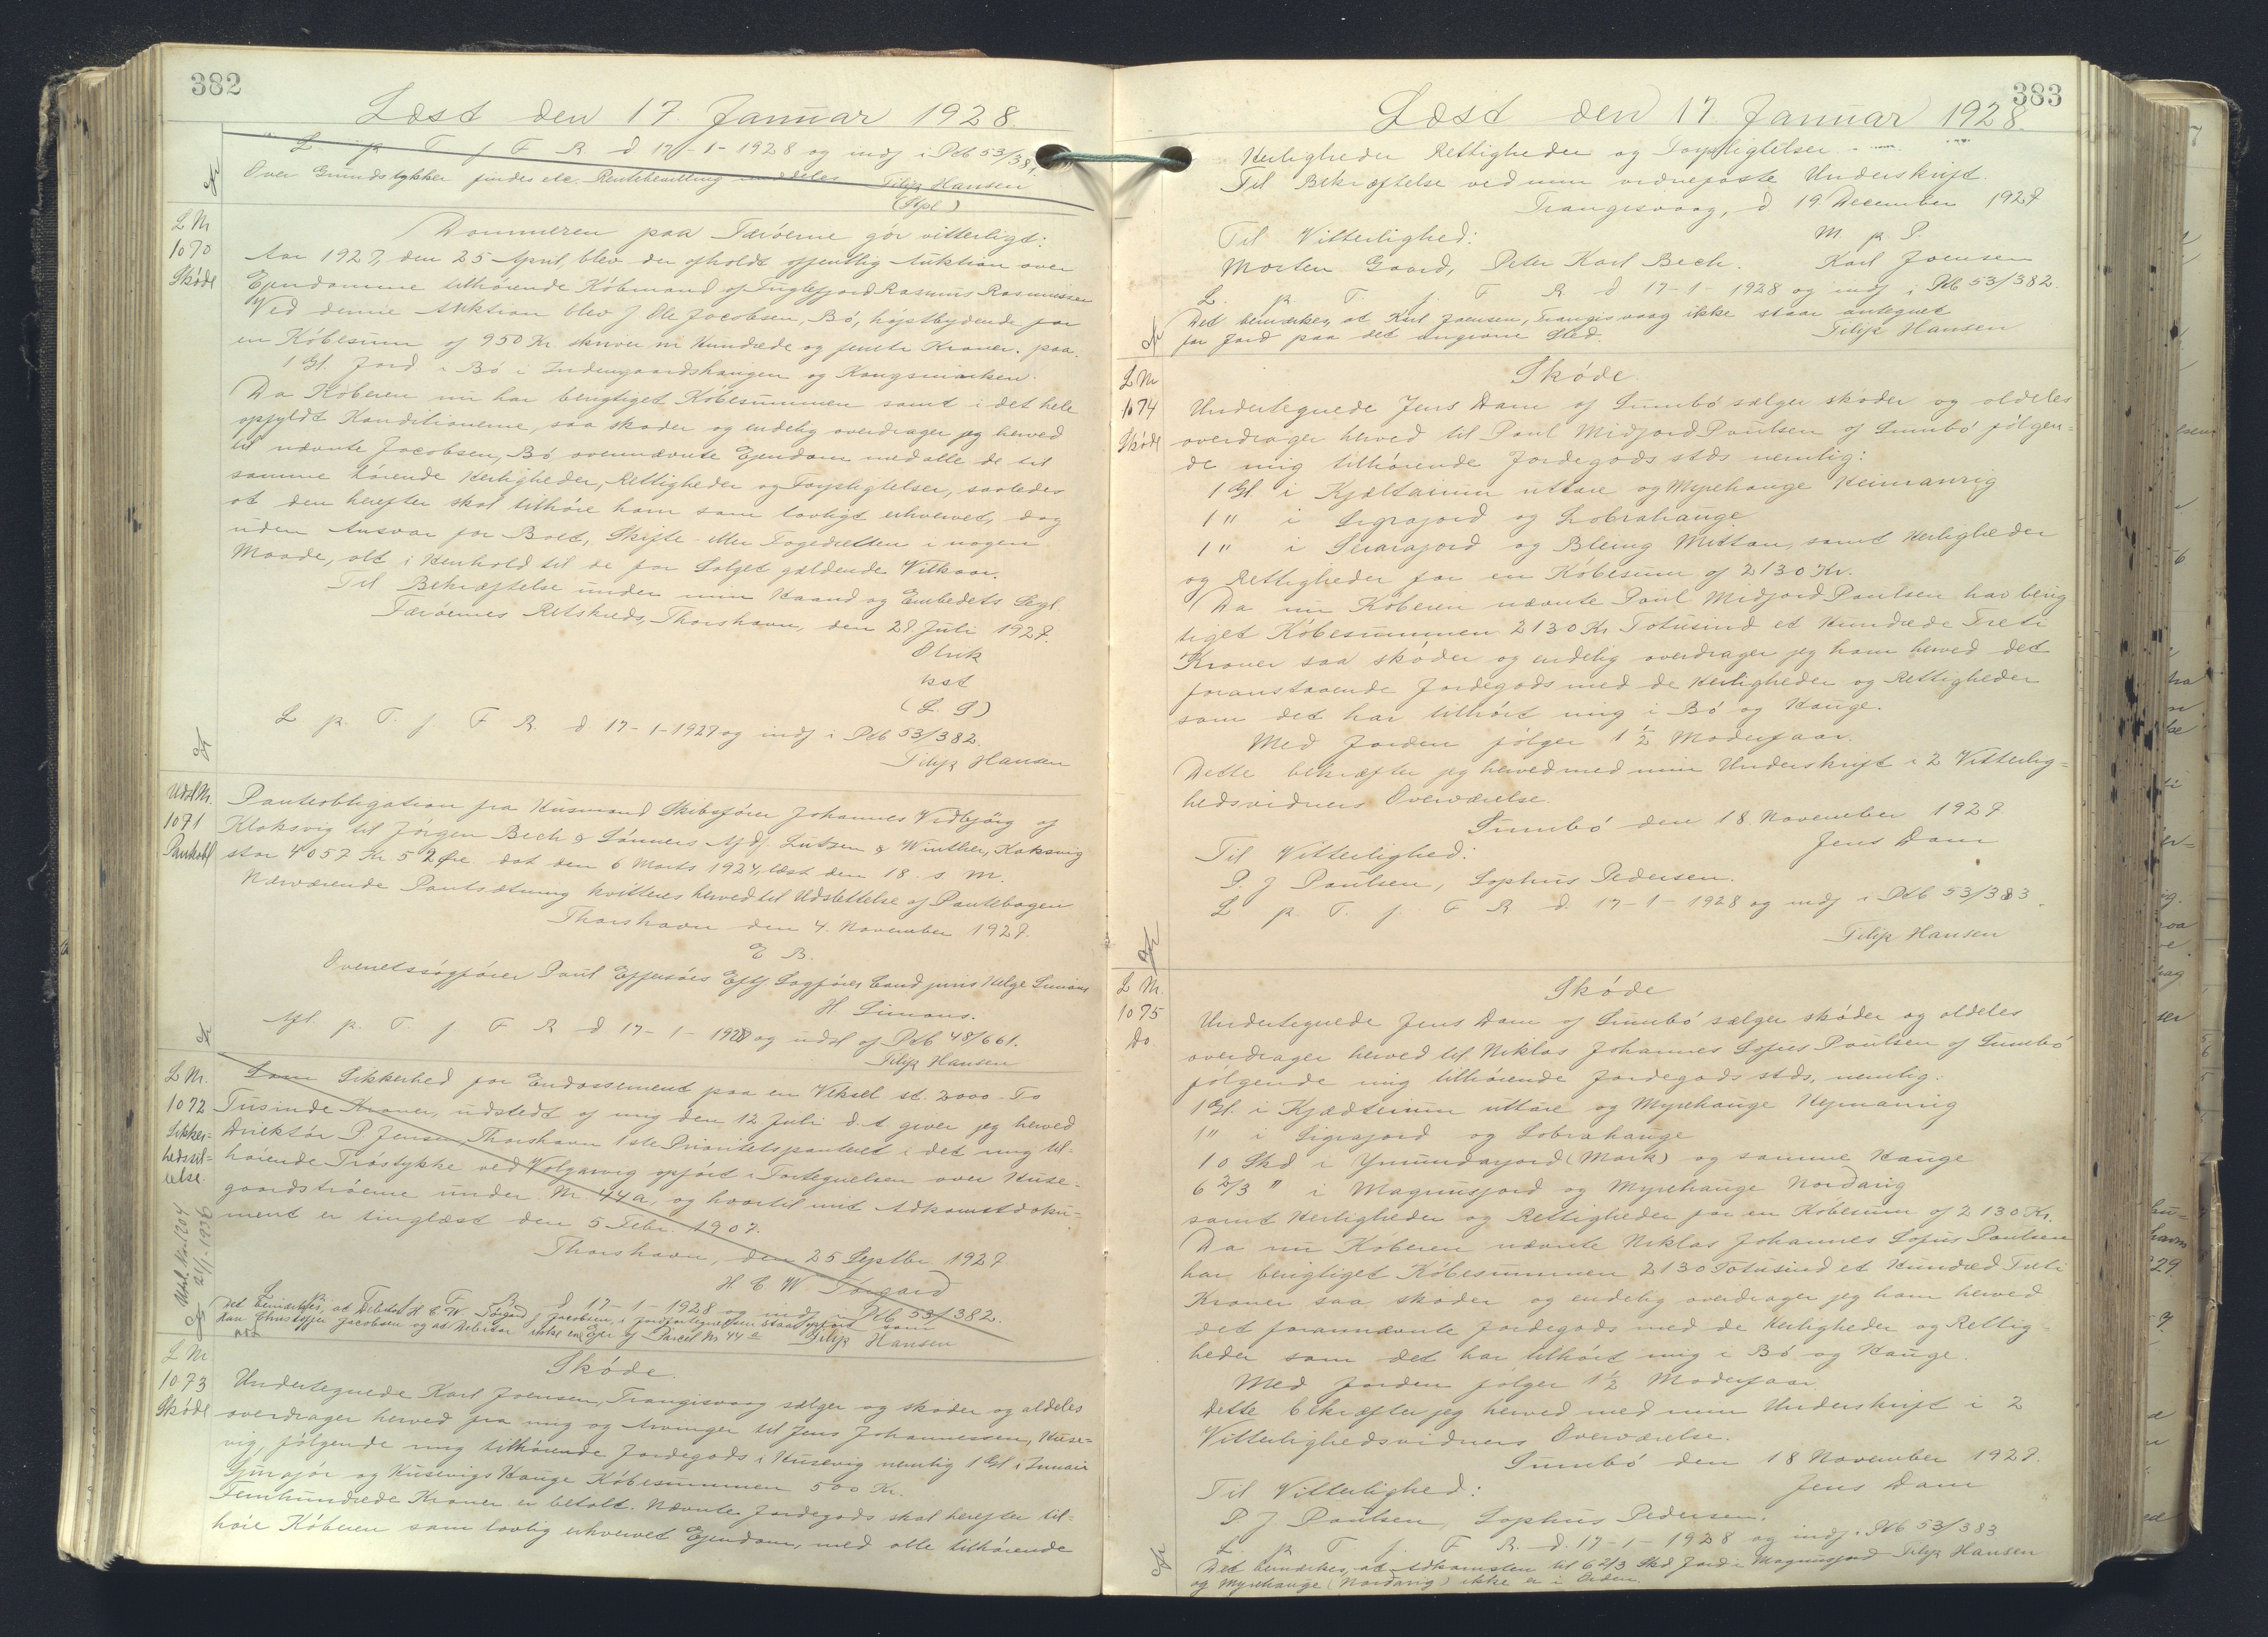 382
Læst den 17. Januar 1928.
L. p. T. f. F. R. d 17-1-1928 og indf i Ptb 53/381.
Over Grundstykker findes etc. Rentebevilling meddeles
Filip Hansen
(Stpl)
L Nr
1070
Skøde
Dommeren paa Færøerne gör vitterligt:
Aar 1927, den 25 April, blev der afholdt offentlig Auktion over
Ejendomme tilhørende Köbmand af Fuglefjord Rasmus Rasmussen
Ved denne Auktion blev J Ole Jacobsen, Bö, højstbydende for
en Köbesum af 950 Kr. skriver ni Hundrede og femti Kroner. paa.
1 Gl. Jord i Bö i Indengaardshaugen og Kongsmarken.
Da Köberen nu har berigtiget Köbesummen samt i det hele
opfyldt Konditionerne, saa skøder og endelig overdrager jeg herved
til nævnte Jacobsen, Bö ovennævnte Ejendom med alle de til
samme hørende Herligheder, Rettigheder og Forpligtelser, saaledes
at den herefter skal tilhöre ham som lovligt erhvervet, dog
uden Ansvar for Boet, Skifte- eller Fogedretten i nogen
Maade, alt i Henhold til de for Salget gældende Vilkaar.
Til Bekræftelse under min Haand og Embedets Segl
Færøernes Retskreds, Thorshavn, den 27 Juli 1927.
Olrik
kst
(L. S)
L p. T. f. F R. d 17-1-1927 og indf i Ptb 53/382.
Filip Hansen
Udsl Nr.
1071
Pantobl
Panteobligation fra Husmand Skibsfører Johannes Vidbjörg af
Klaksvig til Jörgen Bech & Sönners Afdf. Lützen & Winther, Klaksvig
stor 4057 Kr 52 Öre dat den 6 Marts 1924, læst den 18. s. M.
Nærværende Pantsætning kvitteres herved til Udslettelse af Pantebogen
Thorshavn den 4. November 1927.
E B.
Overretssagfører Poul Effersöes Eftf Sagfører Cand juris Helge Simons
H. Simons.
Afl. p. T. f. F R d 17-1-1928 og udsl af Ptb 48/661.
Filip Hansen
L Nr.
1072
Sikker=
hedsstil=
lelse.
Udsl. 21/1-1936
Som Sikkerhed for Endossement paa en Veksel st. 2000 To
Tusinde Kroner, udstedt af mig den 12 Juli d. A. giver jeg herved
Direktör P. Jensen, Thorshavn 1ste Prioritetspanteret i det mig til-
hørende Tröstykke ved Volgarvig opført i Fortegnelsen over Huse-
gaardströerne under Nr. 44a, og hvortil mit Adkomstdoku-
ment er tinglæst den 5 Febr. 1907.
Thorshavn, den 25 Septbr 1927
H C W Törgard
L p. F R d 17-1-1928 og indf i Ptb 53/382.
Det bemærkes, at Debitor H C W Törgard Jacobsen, i Jordfortegnelsen staar opført som
Hans Christoffer Jacobsen og at Debitor ikke er Ejer af Parcel Nr 44a
Filip Hansen
L Nr
1073
Skøde
Skøde.
Undertegnede Karl Joensen, Trangisvaag sælger og skøder og aldeles
overdrager herved fra mig og Arvinger til Jens Johannessen, Huse=
vig, fölgende mig tilhørende Jordegods i Husevig nemlig 1 Gl i Innair
og Husevigs Hauge Köbesummen 500 Kr.
Femhundrede Kroner er betalt. Nævnte Jordegods skal herefter til-
höre Köberen som lovlig erhvervet Ejendom, med alle tilhørende
383
Læst den 17. Januar 1928.
Herligheder Rettigheder og Forpligtelser
Til Bekræftelse ved min vidnefaste Underskrift.
Trangisvaag, d 19 December 1927
Til Vitterlighed: M p P.
Morten Gaard, Peter Karl Bech. Karl Joensen
L. p. T f. F R. d 17-1-1928 og indf i Ptb 53/382.
Det bemærkes, at Karl Joensen, Trangisvaag ikke staar antegnet
for Jord paa det angivne Sted.
Filip Hansen
L Nr
1074
Skøde
Skøde.
Undertegnede Jens Dam af Sumbö sælger skøder og aldeles
overdrager herved til Poul Midjord Poulsen af Sumbö fölgen=
de mig tilhørende Jordegods stds nemlig:
1 Gl i Kjæltairum uttare og Myrehauge Heimanrig
1 " i Sigrajord og Lobrahauge
1 " i og Bleing Mittan, samt Herligheder
og Rettigheder for en Köbesum af 2130 Kr.
Da nu Köberen nævnte Poul Midjord Poulsen har berig
tiget Köbesummen 2130 Kr Totusind et Hundrede Treti
Kroner saa skøder og endelig overdrager jeg ham herved det
foranstaaende Jordegods med de Herligheder og Rettigheder
som det har tilhört mig i Bö og Hauge.
Med Jorden fölger 1 1/2 Moderfaar.
Dette bekræfter jeg herved med min Underskrift i 2 Vitterlig=
hedsvidners Overværelse.
Sumbö den 18 November 1927.
Til Vitterlighed: Jens Dam
P. J Poulsen, Sophus Pedersen.
L p. T. f. F R. d. 17-1-1928 og indf i Ptb 53/383.
Filip Hansen
L Nr.
1075
Do.
Skøde
Undertegnede Jens Dam af Sumbö sælger skøder og aldeles
overdrager herved til Niklas Johannes Sofus Poulsen af Sumbö
fölgende mig tilhørende Jordegods stds, nemlig:
1 Gl. i uttare og Myrehauge Heimanrig
1 " i Sigrajord og Lobrahauge
10 Skd i Ymundarjord (Mark) og samme Hauge
6 2/3 " i Magnusjord og Myrehauge Nordarig
samt Herligheder og Rettigheder for en Köbesum af 2130 Kr.
Da nu Köberen nævnte Niklas Johannes Sofus Poulsen
har berigtiget Köbesummen 2130 Totusind et Hundred Treti
Kroner saa skøder og endelig overdrager jeg ham herved
det forannævnte Jordegods med de Herligheder og Rettig-
heder som det har tilhört mig i Bö og Hauge.
Med Jorden fölger 1 1/2 Moderfaar
Dette bekræfter jeg herved med min Underskrift i 2
Vitterlighedsvidners Overværelse.
Sumbö den 18 November 1927.
Til Vitterlighed: Jens Dam
P J Poulsen, Sophus Pedersen.
L. p. T f. F. R. d. 17-1-1928 og indf. Ptb 53/383
Det bemærkes, at Adkomsten til 6 2/3 Skd Jord i Magnusjord Filip Hansen
og Myrehauge (Nordarig) ikke er i Orden.